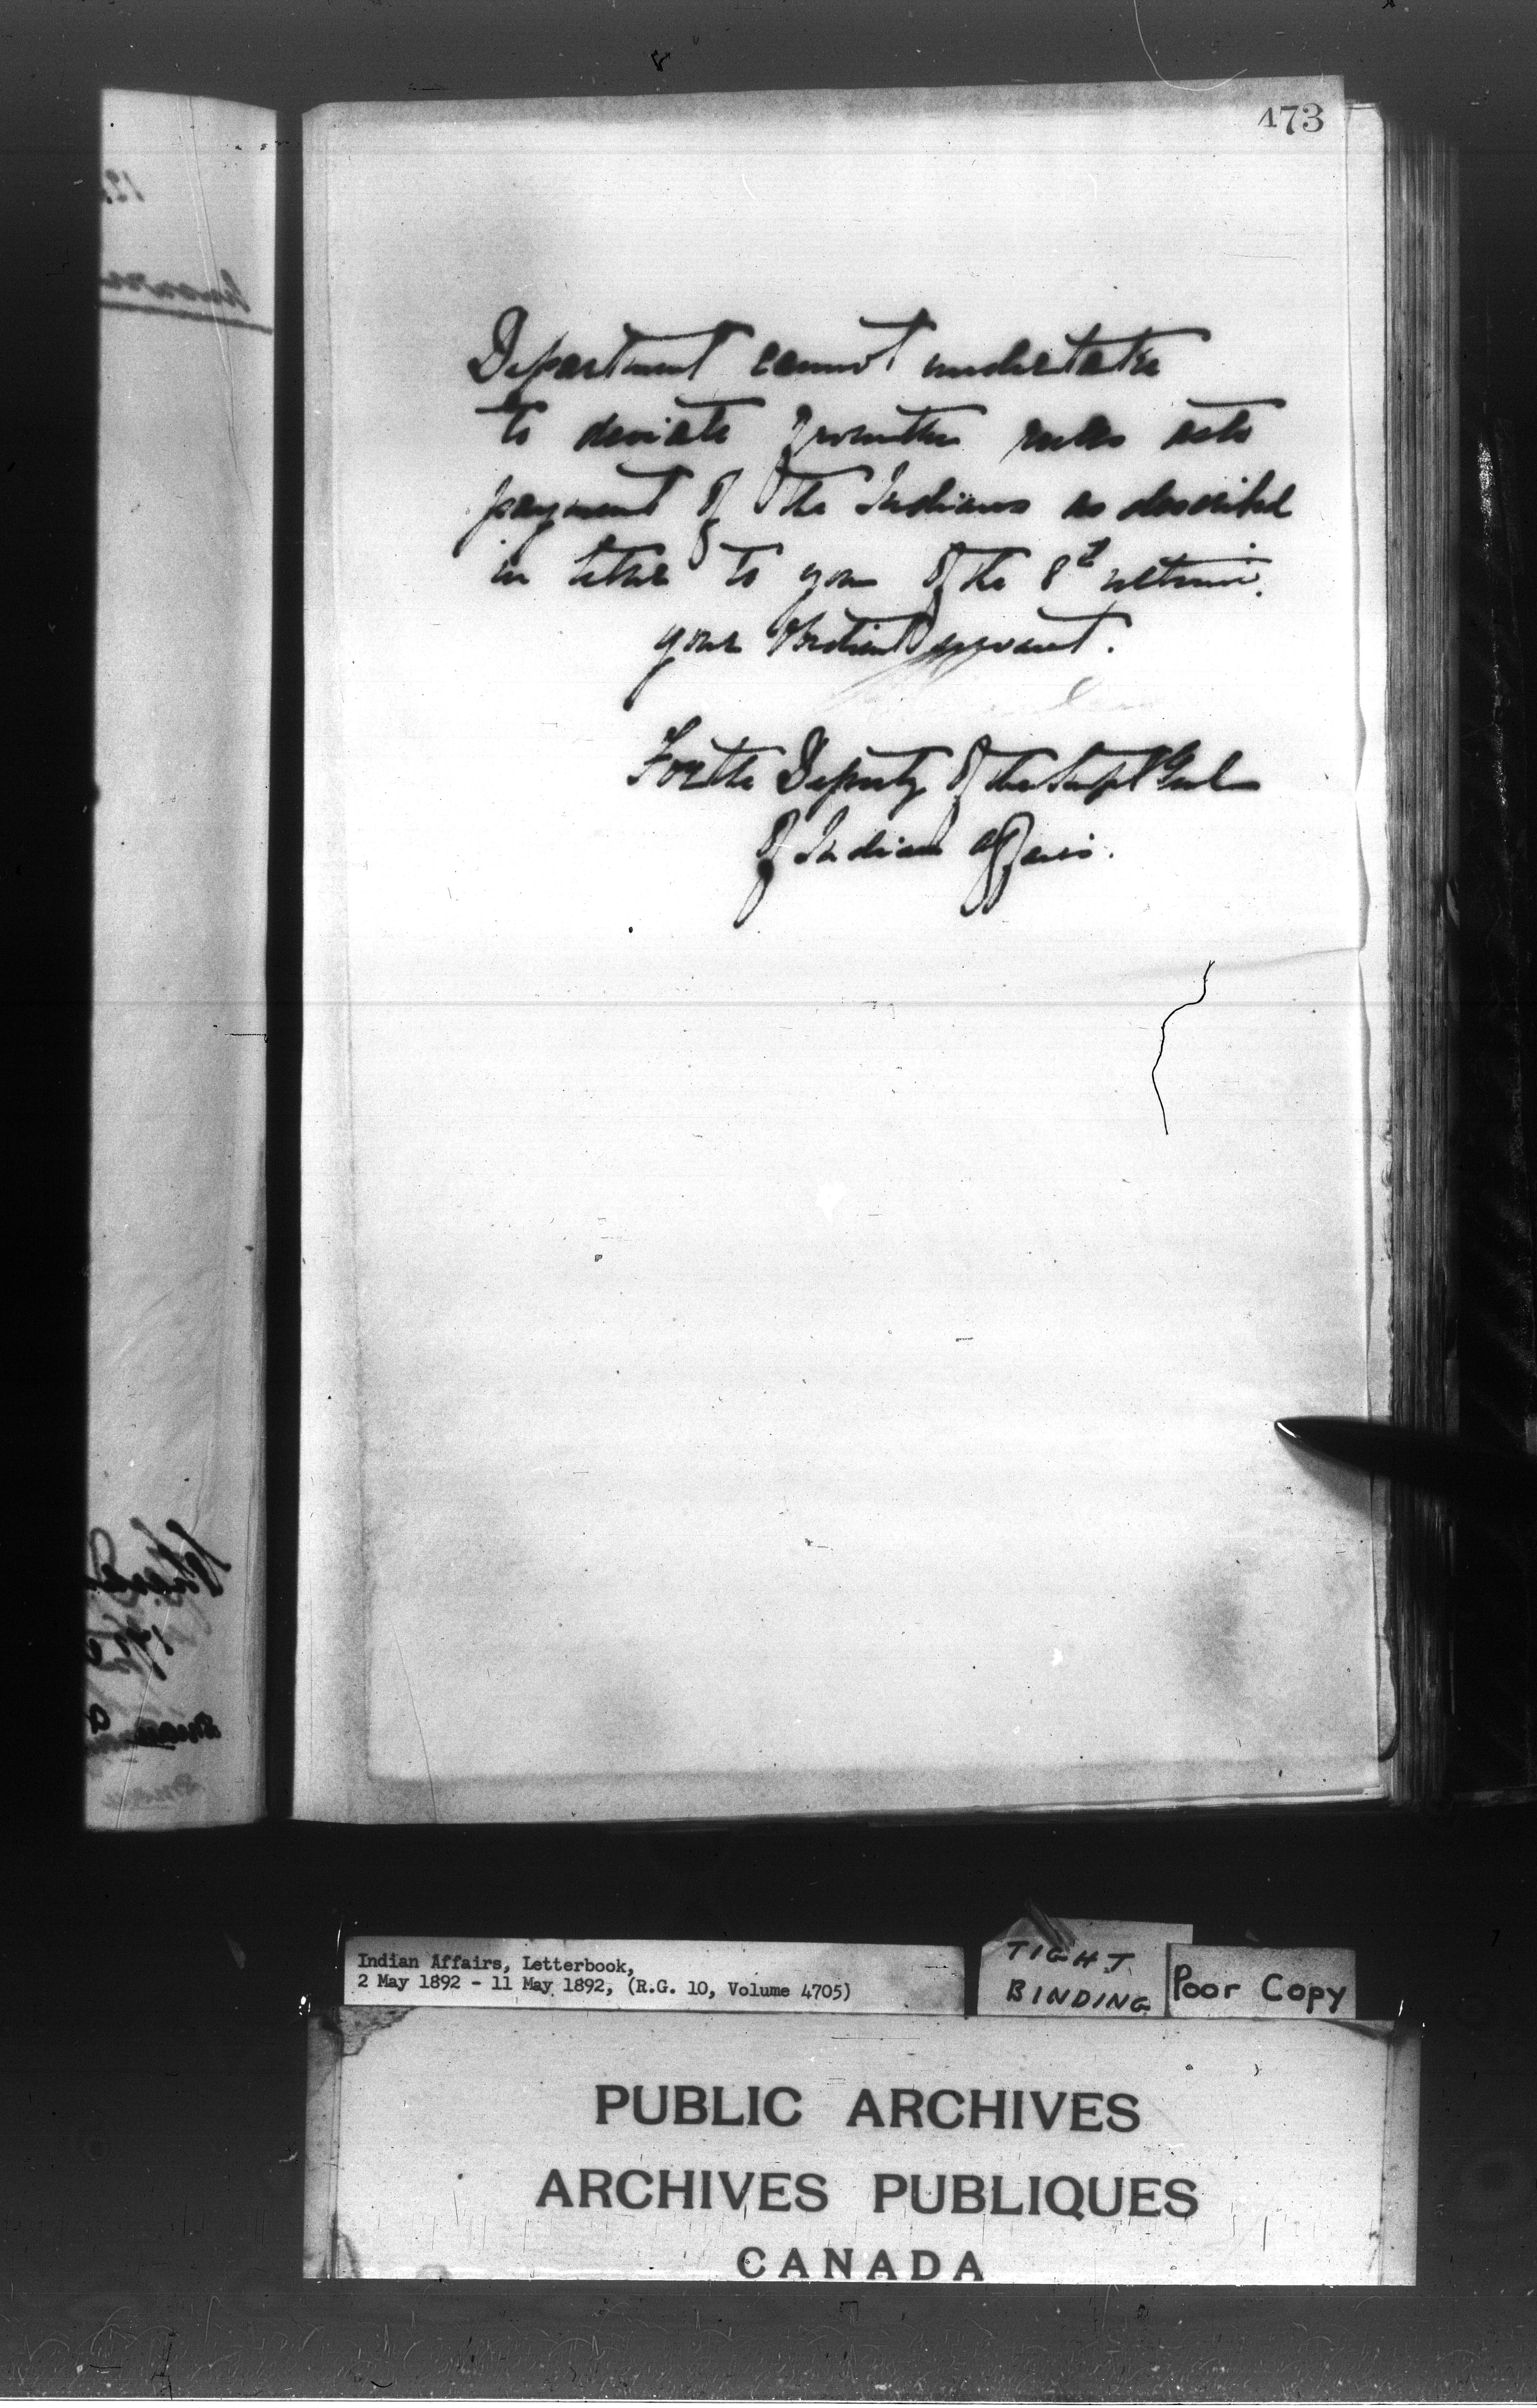 473
Department cannot undertake
to deviate from the rules as to
payment of the Indians as described
in letter to you of the 8th ultimo.
your obedient servant.
For the Deputy of the Supt Genl
of Indian Affairs.
Indian Affairs, Letterbook,
2 May 1892 - 11 May 1892, (R.G. 10, Volume 4705)
TIGHT
BINDING
Poor Copy
PUBLIC ARCHIVES
ARCHIVES PUBLIQUES
CANADA